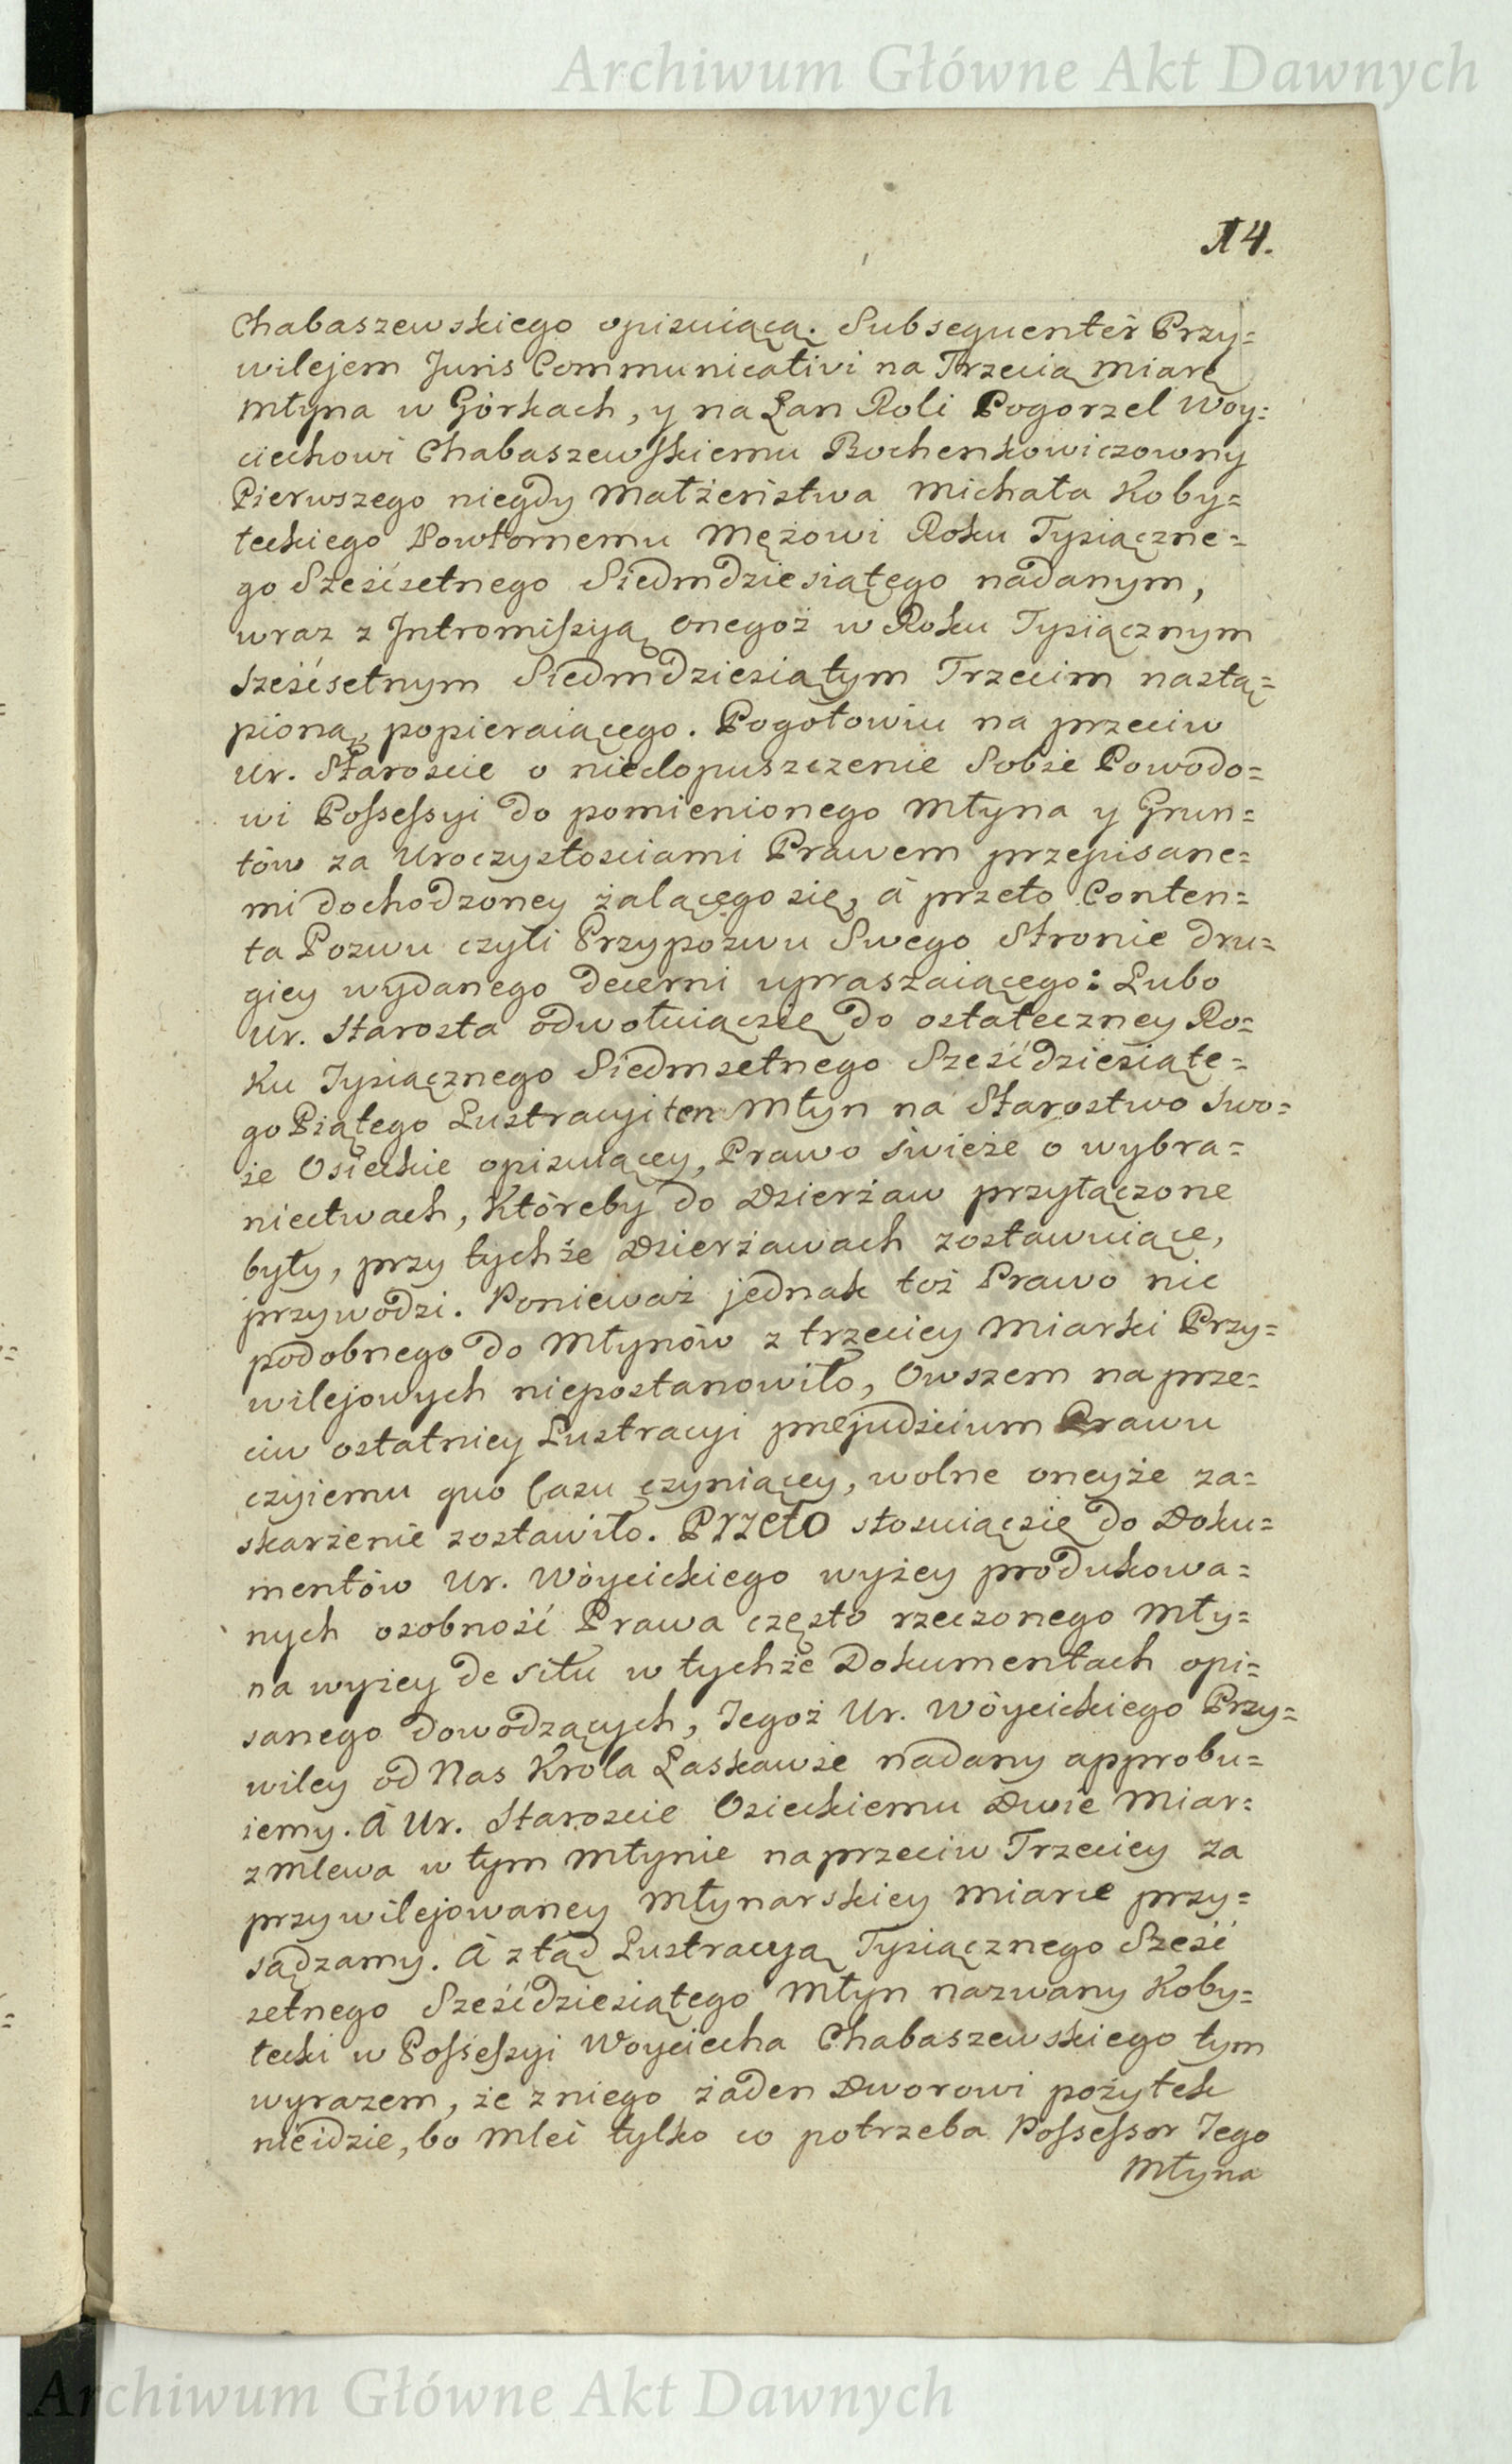 Archiwum Główne Akt Dawnych
14.
Chabaszewskiego opisuiącą. Subsequenter Przy=
wilejem Juris Communicativi na Trzecią miarę
Młyna w Górkach, y na Łan Roli Pogorzel Woy=
ciechowi Chabaszewskiemu Bochenkowiczowny
Pierwszego niegdy Małżeństwa Michała Koby=
łeckiego Powtornemu Mężowi Roku Tysiączne=
go Sześćsetnego Siedmdziesiątego nadanym,
wraz z Intromissyą onegoż w Roku Tysiącznym
Sześćsetnym Siedmdziesiątym Trzecim nastą=
pioną, popieraiącego. Pogotowiu na przeciw
Ur. Staroscie o niedopuszczenie Sobie Powodo=
wi Possessyi do pomienionego Młyna y Grun=
tów za Uroczystosciami Prawem przepisane=
mi dochodzoney żalącego się, á przeto Conten=
ta Pozwu czyli Przypozwu Swego Stronie dru=
giey wydanego decerni upraszaiącego: Lubo
Ur. Starosta odwołuiącsię do ostateczney Ro=
ku Tysiącznego Siedmsetnego Sześćdziesiąte=
go Piątego Lustracyi ten Młyn na Starostwo swo=
ie Osieckie opisuiącey, Prawo świeże o wybra=
niectwach, któreby do Dzierżaw przyłączone
były, przy tychże Dzierżawach zostawuiące,
przywodzi. Ponieważ jednak toż Prawo nic
podobnego do Młynów z trzeciey Miarki Przy=
wilejowych niepostanowiło, Owszem na prze=
ciw ostatniey Lustracyi prejudicium Prawu
czyiemu quo Casu czyniącey, wolne oneyże za=
skarżenie zostawiło. Przeto stosuiącsię do Doku=
mentów Ur. Wóycickiego wyżey produkowa=
nych osobność Prawa często rzeczonego Mły=
na wyżey de situ w tychże Dokumentach opi=
sanego dowodzących, Tegoż Ur. Wóycickiego Przy=
wiley od Nas Króla Łaskawie nadany approbu=
iemy. Á Ur. Staroscie Osieckiemu Dwie Miar=
z mlewa w tym Młynie naprzeciw Trzeciey za
przywilejowaney Młynarskiey Miarce przy=
sądzamy. Á ztąd Lustracyą Tysiącznego Sześć
setnego Sześćdziesiątego Młyn nazwany Koby=
łecki w Possessyi Woyciecha Chabaszewskiego tym
wyrazem, że z niego żaden Dworowi pożytek
nieidzie, bo Mleć tylko co potrzeba Possessor Tego
Młyna
Archiwum Główne Akt Dawnych